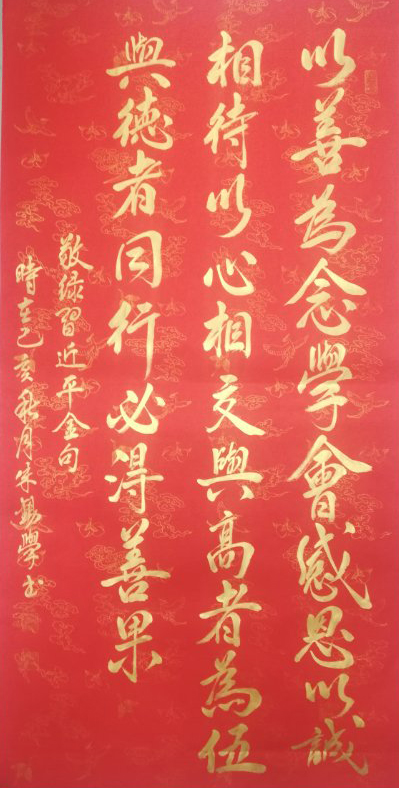 以善為念學會感恩以誠
相待以心相交與高者為伍
與德者同行必得善果
敬録習近平金句
時在己亥秋月朱學書